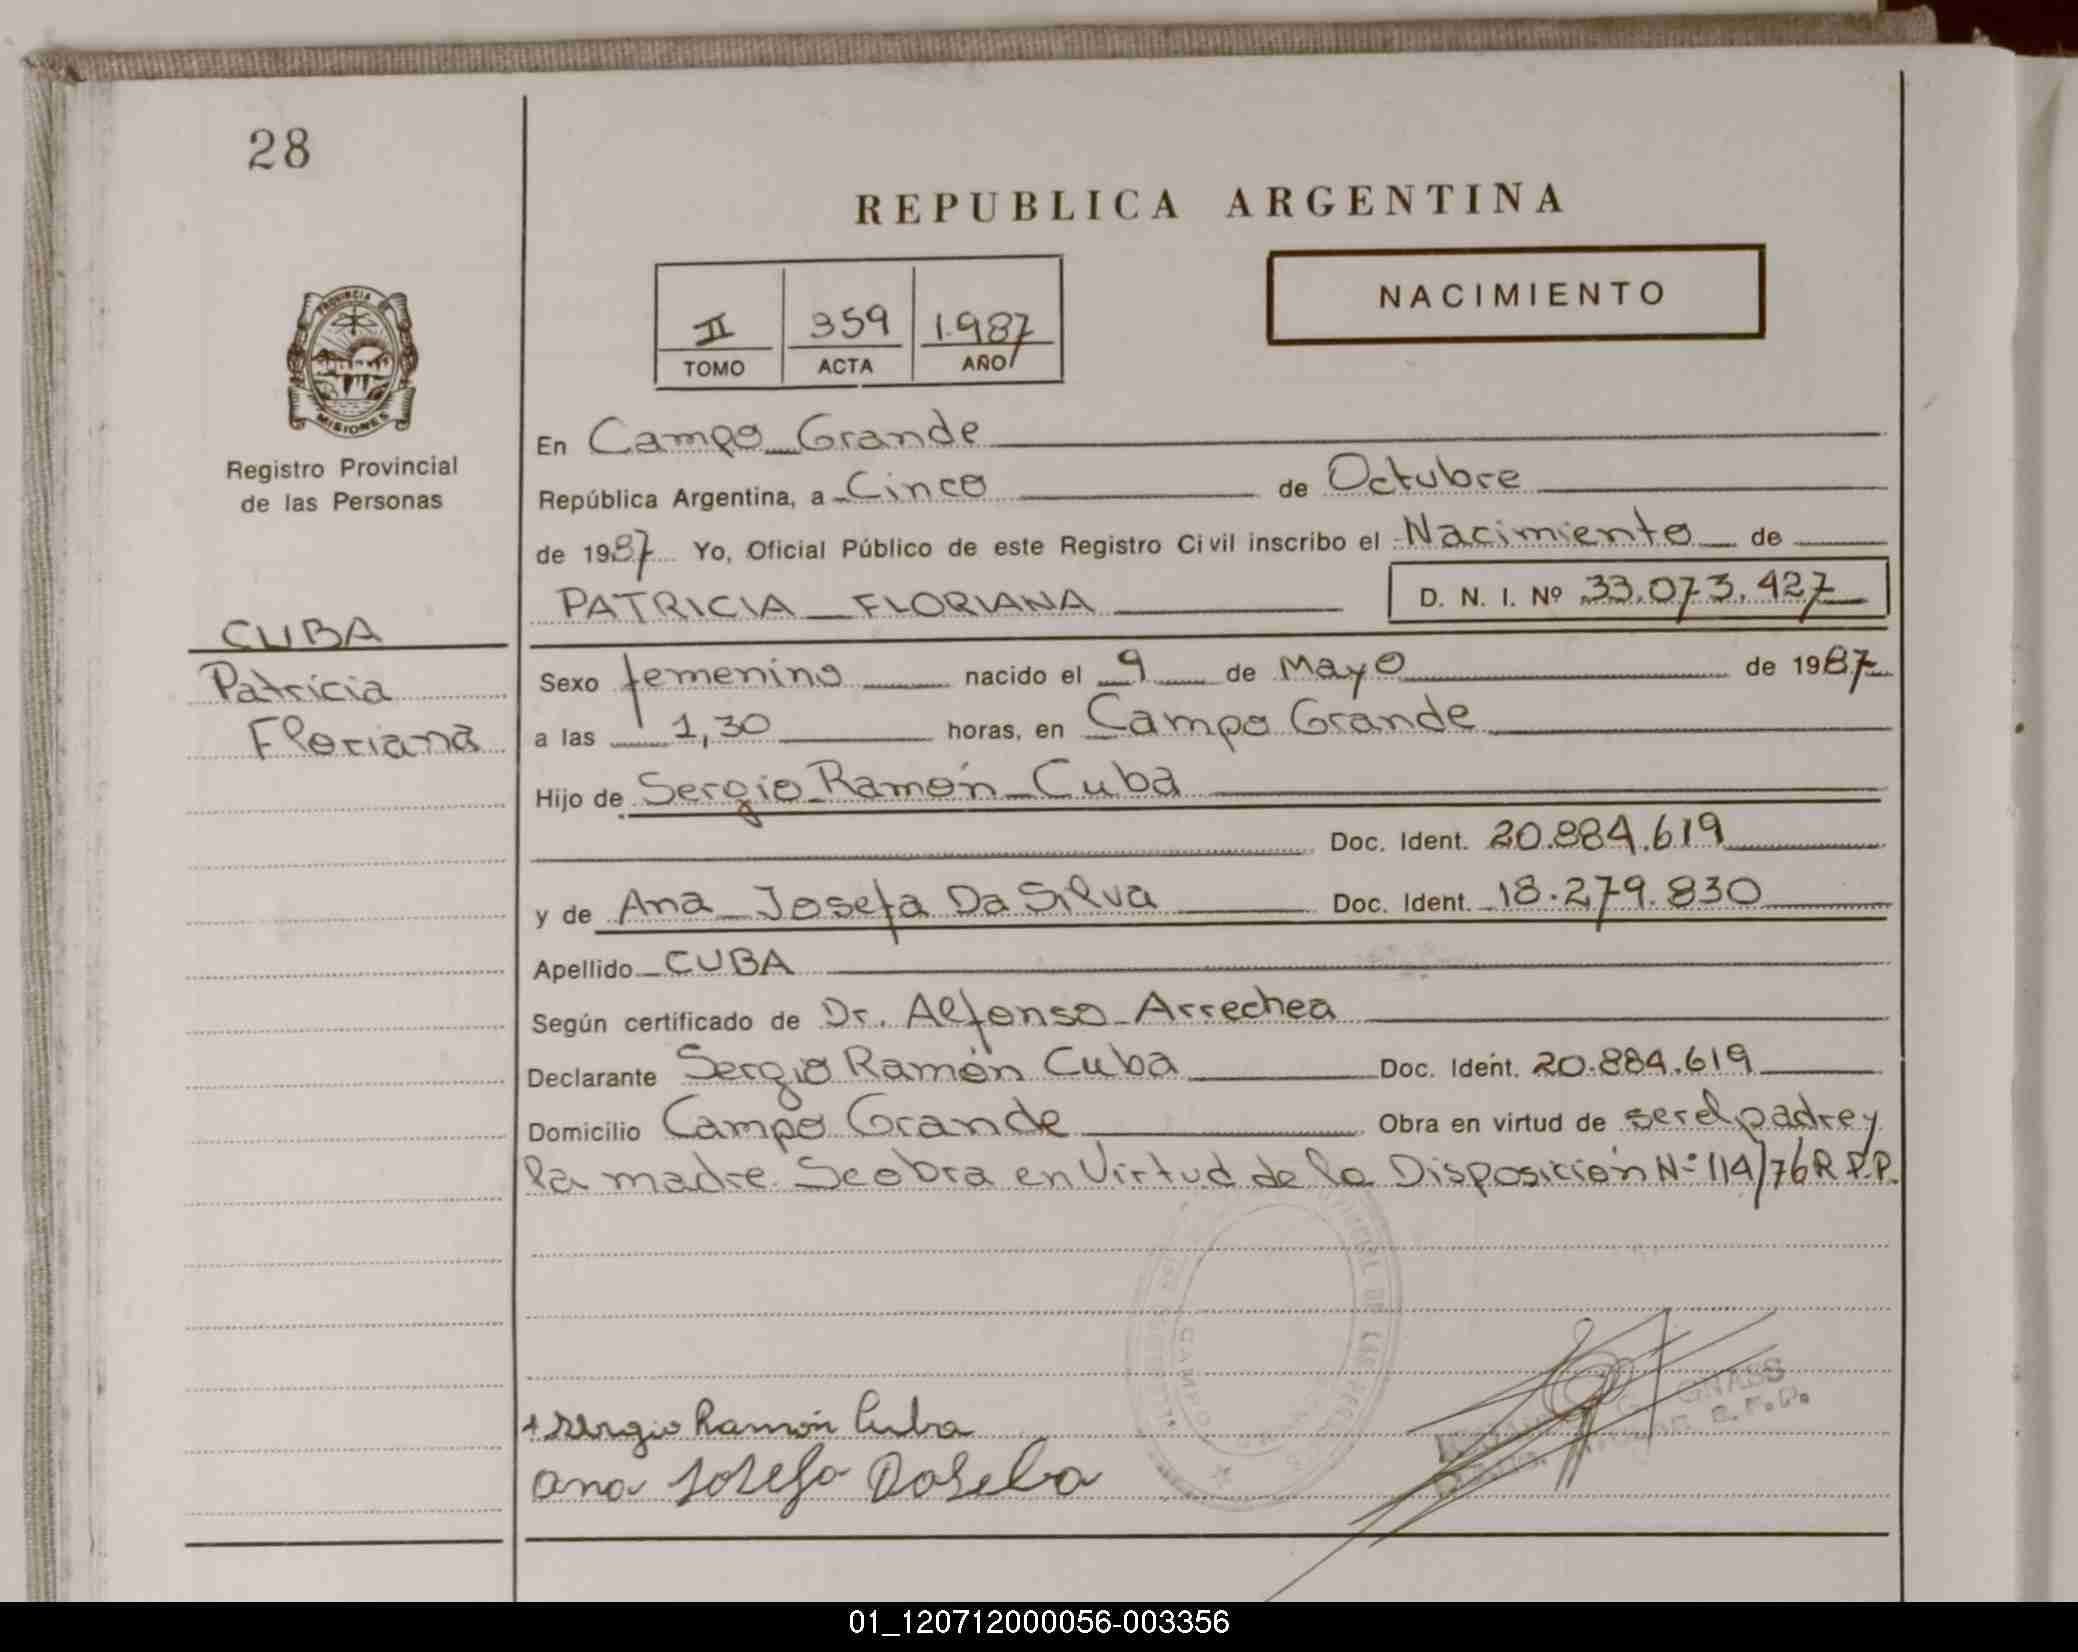 28
REPUBLICA ARGENTINA
NACIMIENTO
II 359 1.987
TOMO ACTA AÑO
PROVINCIA DE
MISIONES
Registro Provincial
de las Personas
CUBA
Patricia
Floriana
En Campo Grande
República Argentina, a Cinco de Octubre
de 1987 Yo, Oficial Público de este Registro Civil inscribo el Nacimiento de
PATRICIA FLORIANA D. N. I. Nº 33.073.427
Sexo femenino nacido el 9 de Mayo de 1987
a las 1,30 horas, en Campo Grande
Hijo de Sergio Ramón Cuba
Doc. Ident. 20.884.619
y de Ana Josefa Da Silva Doc. Ident. 18.279.830
Apellido CUBA
Según certificado de Dr. Alfonso Arrechea
Declarante Sergio Ramón Cuba Doc. Ident. 20.884.619
Domicilio Campo Grande Obra en virtud de ser el padre y
la madre. Se obra en Virtud de la Disposición Nº 114/76 R.P.P.
CAMPO
Sergio Ramón Cuba
Ana Josefa Da Selba
01_120712000056-003356